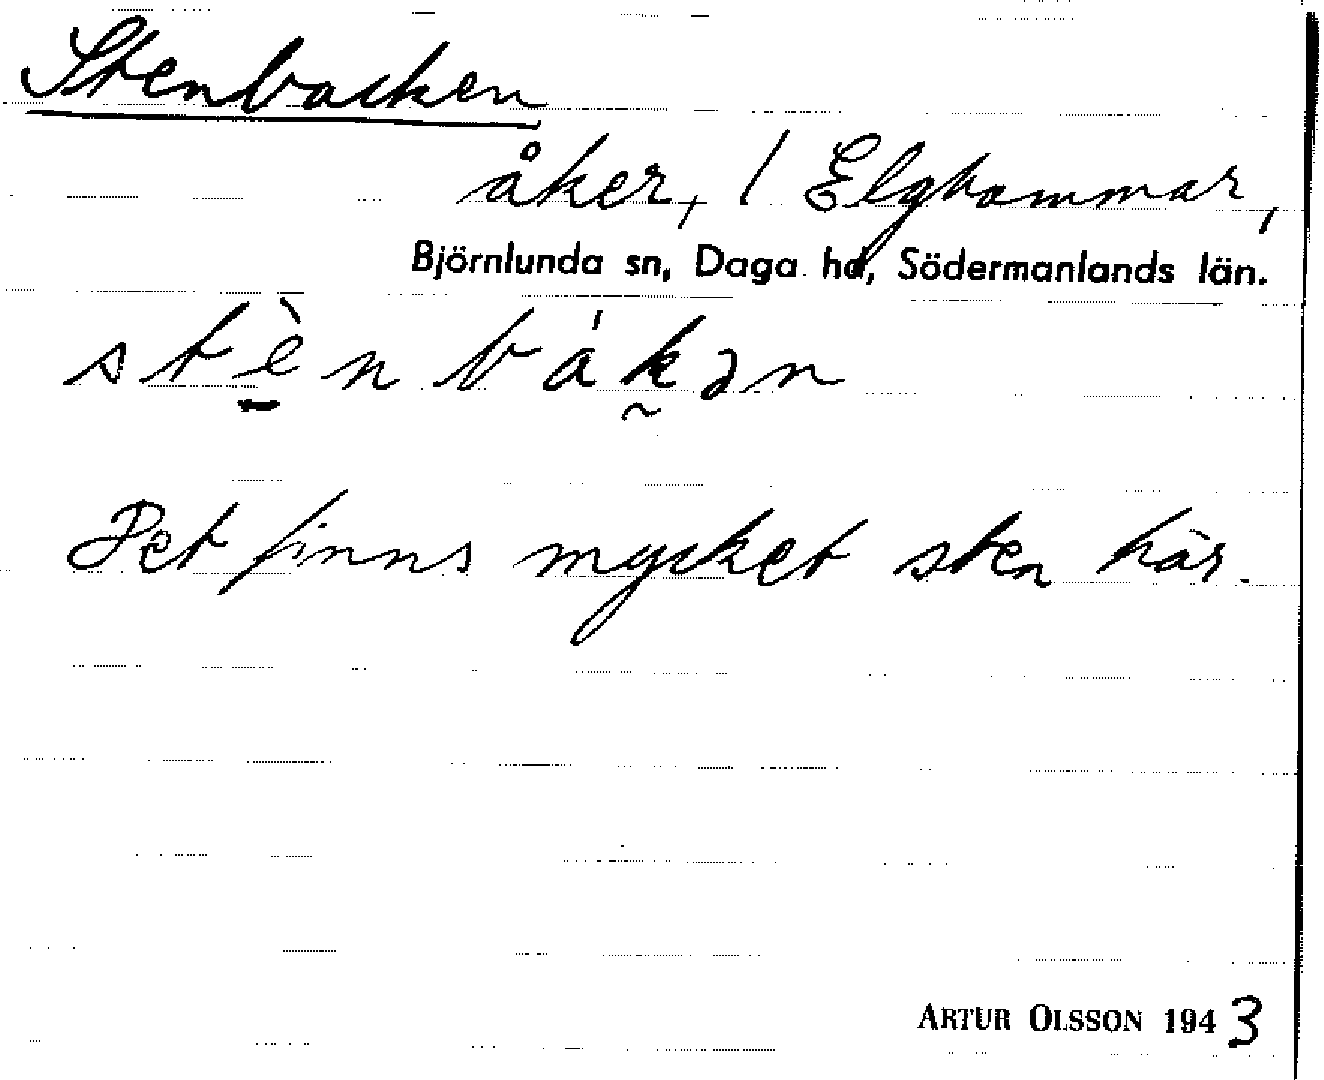 Stenbacken
åker, / Elghammar,
Björnlunda sn, Daga hd, Södermanlands län.
stènbákən
Det finns mycket sten här.
ARTUR OLSSON 1943